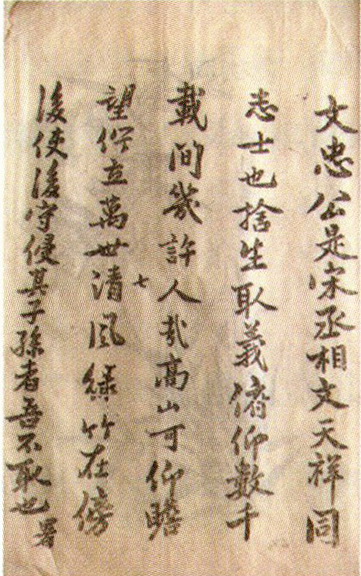 文忠公是宋丞相文天祥同
志士也捨生取義俯仰數千
載间幾許人哉高山可仰瞻
七
望佇立萬世清風綠竹在傍
後使後守侵其子孫者吾不取也